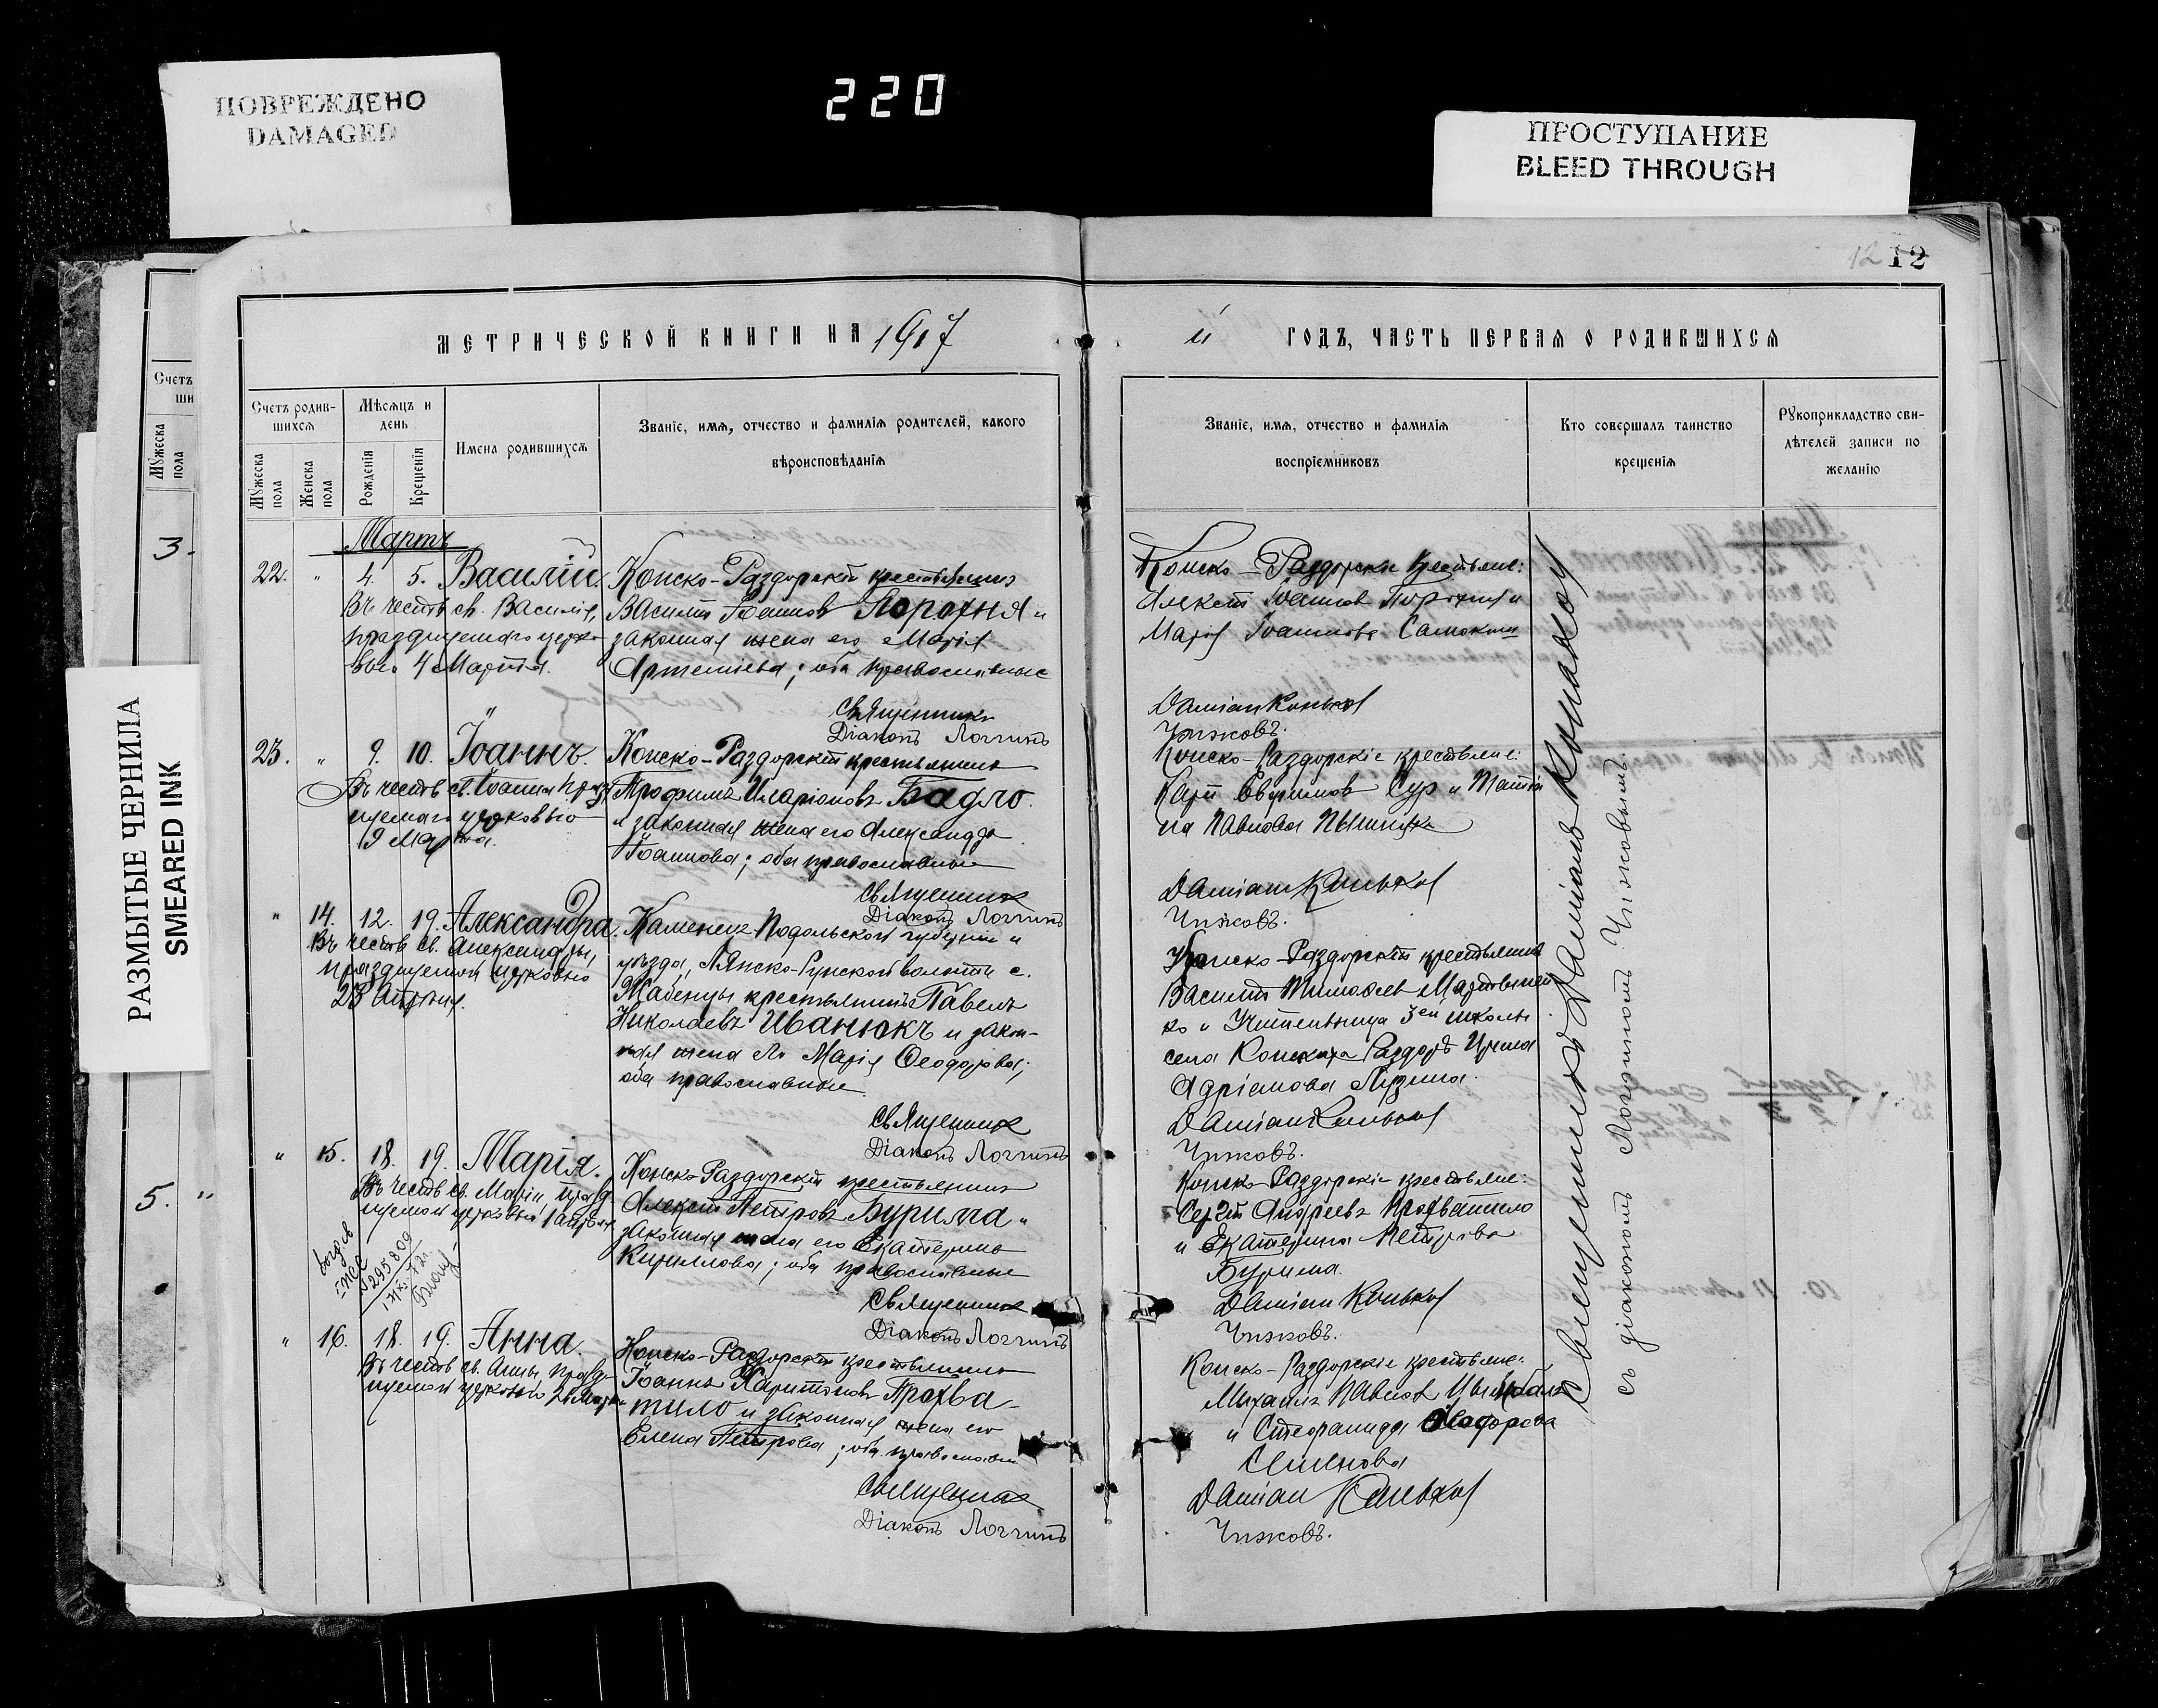 220
ПОВРЕЖДЕНО
DAMAGED
ПРОСТУПАНИЕ
BLEED THROUGH
РАЗМЫТЫЕ ЧЕРНИЛА
SMEARED INK
12 12
Счетъ
ши
Мꙋжеска
пола
3.
5. "
МЕТРИЧЕСКОЙ КНИГИ НА 1917
й ГОДЪ, ЧАСТЬ ПЕРВАЯ О РОДИВШИХСЯ
Счетъ родив-
шихся
Мꙋжеска
пола
Женска
пола
Мѣсяцъ и
день
Рожденія
Крещенія
Имена родившихся
Званіе, имя, отчество и фамилія родителей, какого
вѣроисповѣданія
Званіе, имя, отчество и фамилія
воспріемниковъ
Кто совершалъ таинство
крещенія
Рꙋкоприкладство сви-
дѣтелей записи по
желанію
Мартъ
22. " 4. 5. Василій
Въ честь св. Василія,
празднуемаго церко-
вью 4 Марта.
Конско-Раздорскій крестьянинъ
Василій Іоанновъ Порохня и
законная жена его Марія
Артемьева; оба православные
Священникъ
Діаконъ Логгинъ
Конско-Раздорскіе крестьяне:
Алексій Іоанновъ Порохня и
Марія Іоаннова
Даміанъ Коньков
Чижовъ.
23. " 9. 10. Іоаннъ.
Въ честь св. Іоанна празд
нуемаго церковью
9 Марта.
Конско-Раздорскій крестьянинъ
Трофимъ Иларіоновъ Бадло.
и законная жена его Александра
Іоаннова; оба православные
Священникъ
Діаконъ Логгинъ
Конско-Раздорскіе крестьяне:
Карп Евфимов Сур и Матрё
на Павлова
Даміанъ Коньков
Чижовъ.
" 14. 12. 19. Александра.
Въ честь св. Александры,
празднуемой церковью
23 Апрѣля.
Каменец-Подольской губерніи и
уѣзда, Лянско-Рунской волости с.
Жабенцы крестьянинъ Павелъ
Николаевъ Иванюкъ и закон-
ная жена его Марія Ѳеодорова;
оба православные.
Священникъ
Діаконъ Логгинъ
Конско-Раздорскій крестьянинъ
Василій Тимоѳеев Мартынен
ко и Учительница 3ей школы
села Конскихъ Раздоръ Ирина
Адріанова Лизина.
Даміанъ Коньков
Чижовъ.
" 15. 18. 19. Марія.
Въ честь св. Маріи, празд
нуемой церковью 1 апрѣля
Конско-Раздорскій крестьянинъ
Алексій Петровъ Бурима и
законная жена его Екатерина
Кириллова; оба православные
Священникъ
Діаконъ Логгинъ
Конско-Раздорскіе крестьяне:
Сергій Андреевъ Прохватило
и Екатерина Петрова
Бурима.
Даміанъ Коньков
Чижовъ.
295809
" 16. 18. 19. Анна.
Въ честь св. Анны, празд-
нуемой церковью
Конско-Раздорскій крестьянинъ
Іоаннъ Харитоновъ Прохва-
тило и законная жена его
Елена Петрова; оба православн
Священникъ
Діаконъ Логгинъ
Конско-Раздорскіе крестьяне:
Михаилъ Павлов Цымбалъ
и Стефанида Ѳеодорова
Семенова
Даміанъ Коньков
Чижовъ.
Священникъ Даміанъ Коньков
съ діакономъ Логгиномъ Чижовымъ.